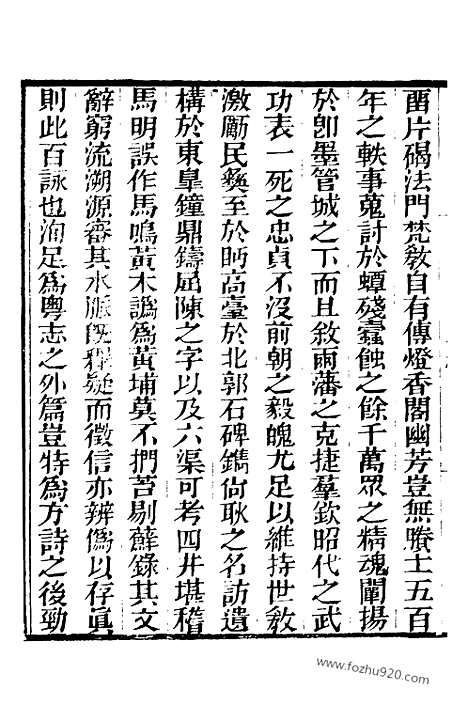 畱片碣法門梵敎自有傳燈香閣幽芳豈無賸土五百
年之軼事蒐討於蟫殘蠧蝕之餘千萬衆之精魂闡揚
於卽墨管城之下而且敘兩藩之克捷羣欽昭代之武
功表一死之忠貞不沒前朝之毅魄尤足以維持世敎
激厲民彝至於眄高臺於北郭石碑鐫尙耿之名訪遺
構於東臯鐘鼎鑄屈陳之字以及六渠可考四井堪稽
馬明誤作馬鳴黃木譌爲黃埔莫不捫苔剔蘚錄其文
辭窮流溯源審其水脈旣釋疑而徵信亦辨僞以存眞
則此百詠也洵足爲粵志之外篇豈特爲方詩之後勁
www.fozhu920.com